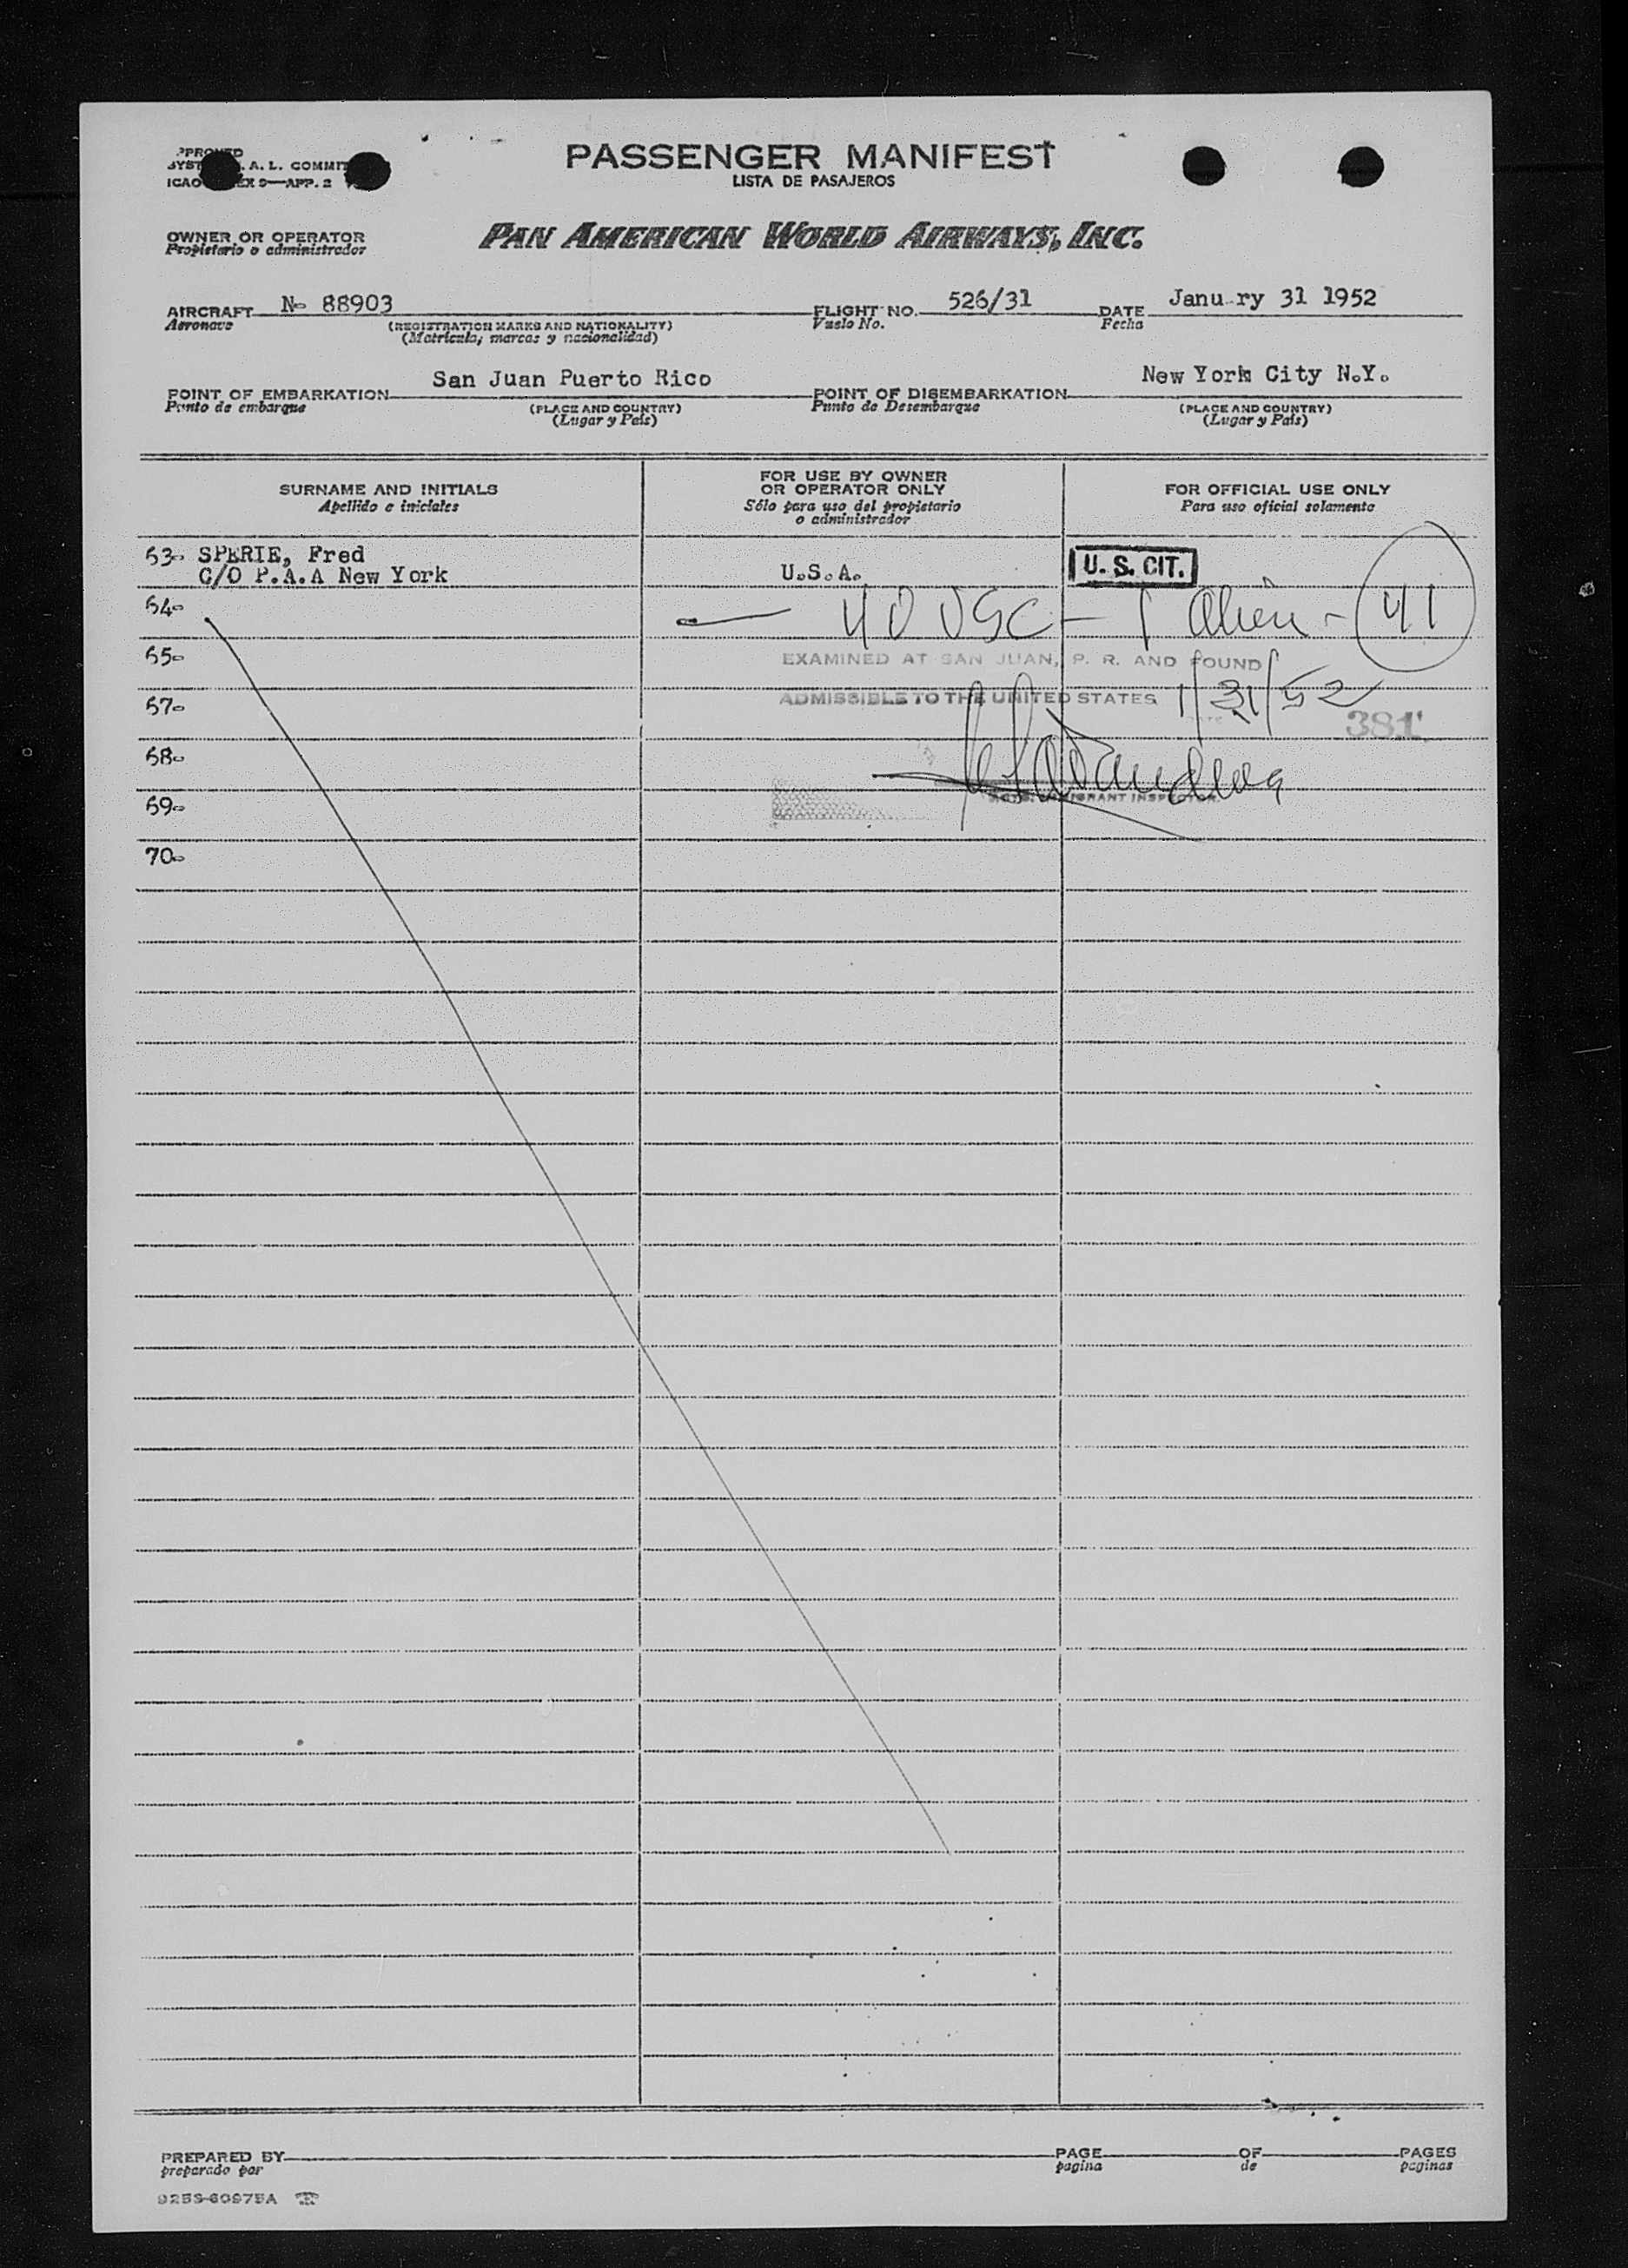 PASSENGER MANIFEST
LISTA DE PASAJEROS
A. L.
ICAO
APP. 2
OWNER OR OPERATOR
Propietario o administrador
PAN AMERICAN WORLD AIRWAYS, INC.
AIRCRAFT N- 88903
FLIGHT NO. 526/31
DATE Janu ry 31 1952
Aeronave
(REGISTRATION MARKS AND NATIONALITY)
Vuelo No.
Fecha
(Matricula, marcas y nacionalidad)
POINT OF EMBARKATION San Juan Puerto Rico
POINT OF DISEMBARKATION New York City N.Y.
Punto de embarque
(PLACE AND COUNTRY)
Punto de Desembarque
(PLACE AND COUNTRY)
(Lugar y País)
(Lugar y País)
SURNAME AND INITIALS
Apellido e iniciales
FOR USE BY OWNER
OR OPERATOR ONLY
Sólo para uso del propietario
o administrador
FOR OFFICIAL USE ONLY
Para uso oficial solamente
63- SPERIE, Fred
C/O P.A.A New York
U.S.A.
U. S. CIT.
64-
40 USC - 1 Alien - 41
65-
EXAMINED AT SAN JUAN, P. R. AND FOUND
ADMISSIBLE TO THE UNITED STATES 1/31/52
67-
381
68-
69-
70-
PREPARED BY
PAGE
OF
PAGES
preparado por
pagina
de
paginas
9253-60975A